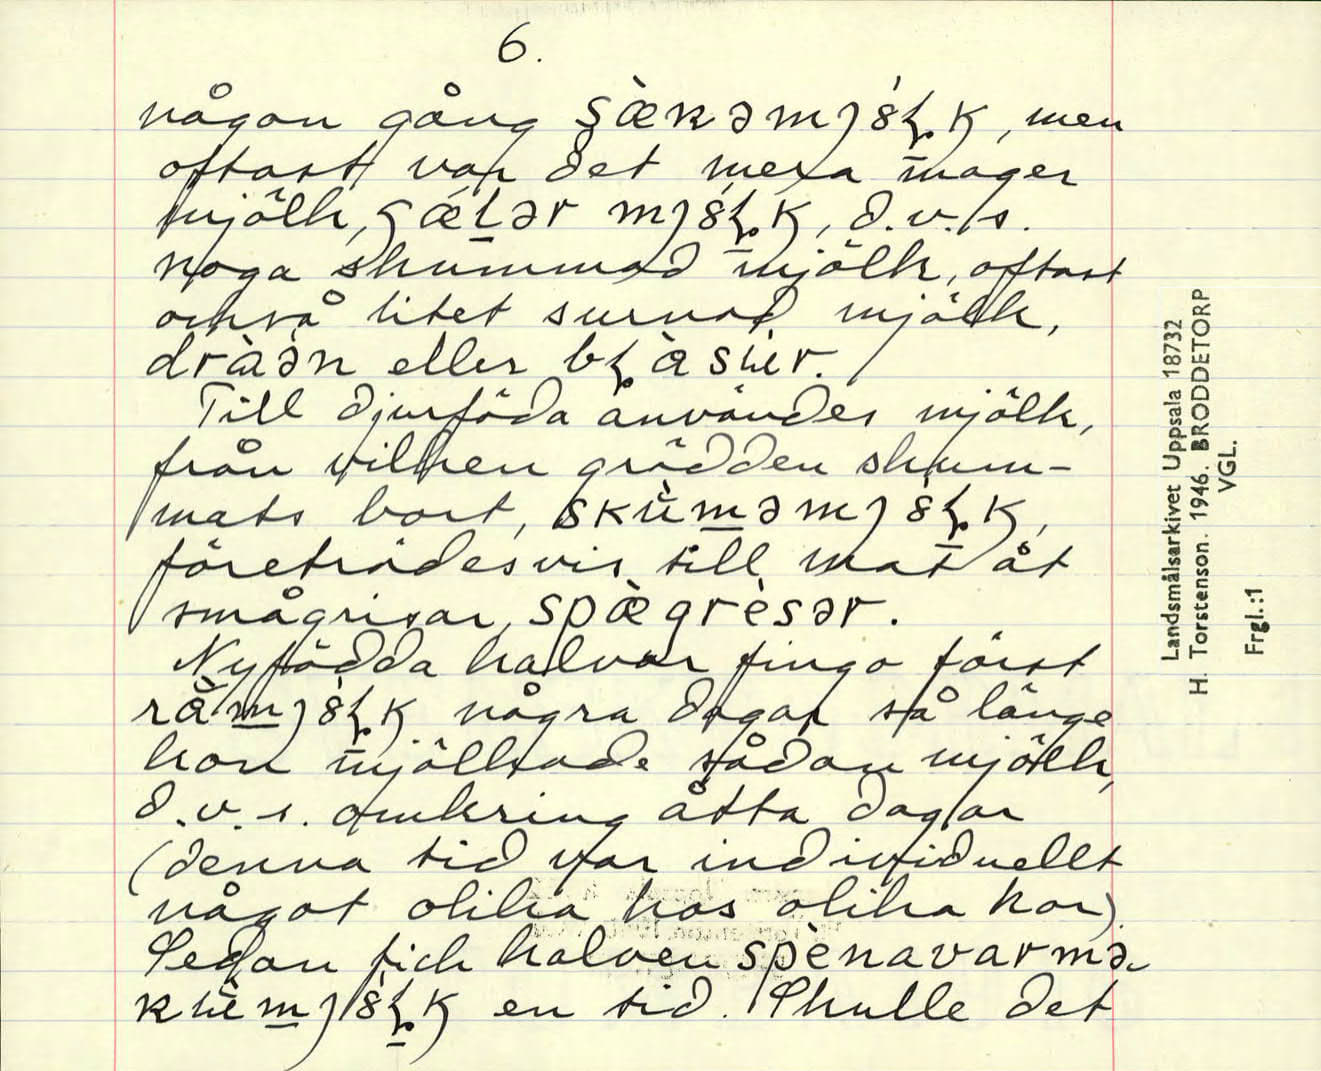 6.
någon gång s̀ækəmjölk, men
oftast var det mera mager
mjölk, gǽlər mjölk, d.v.s.
noga skummad mjölk, oftast
också litet surnad mjölk,
dràən eller blàsúr.
Till djurföda användes mjölk,
från vilken grädden skum-
mats bort, skùməmjölk,
företrädesvis till mat åt
smågrisar, spæ̀grèsər.
Nyfödda kalvar fingo först
råmjölk några dagar så länge
kon mjölkade sådan mjölk,
d.v.s. omkring åtta dagar
(denna tid var individuellt
något olika hos olika kor).
Sedan fick kalven spènavarmə
kùmjölk en tid. Skulle det
Landsmålsarkivet Uppsala 18732
H. Torstenson. 1946. BRODDETORP
VGL.
Frgl.:1